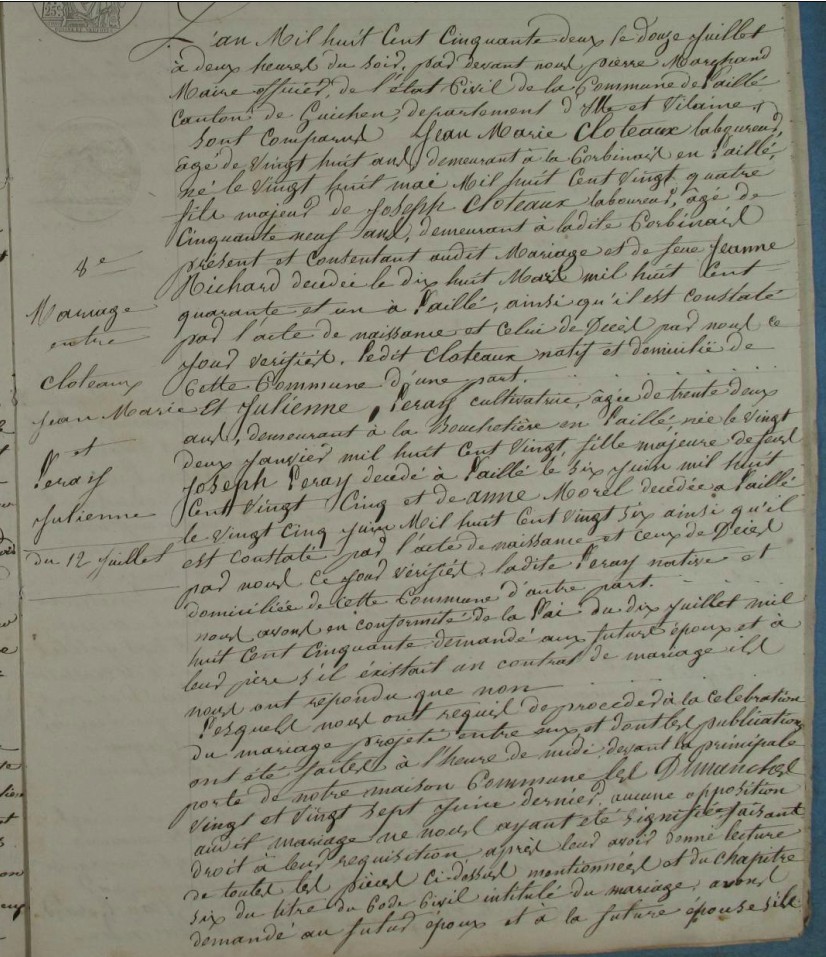 25c
L'an Mil huit Cent Cinquante deux le douze Juillet
à deux heures du soir, par devant nous pierre Marchand
Maire officier de l'état Civil de la Commune de Laillé
Canton de Guichen, departement d'Ille et Vilaine
Sont Comparus Jean Marie Cloteaux laboureur,
âgé de vingt huit ans, demeurant à la Corbinais en Laillé,
né le vingt huit mai Mil huit Cent vingt quatre
fils majeur de Joseph Cloteaux laboureur, âgé de
Cinquante neuf ans, demeurant à ladite Corbinais
présent et Consentant audit Mariage et de feue Jeanne
Richard decedée le dix huit Mars mil huit Cent
quarante et un à Laillé, ainsi qu'il est constaté
par l'acte de naissance et celui de Décès par nous ce
jour vérifiés. Ledit Cloteaux natif et domicilié de
Cette Commune d'une part.
Et Julienne Peray cultivatrice, âgée de trente deux
ans, demeurant à la Bouchetière en Laillé, née le vingt
deux Janvier mil huit Cent vingt, fille majeure de feus
Joseph Peray decedé à Laillé le six Juin mil huit
Cent vingt Cinq et de anne Morel decedée a Laillé
le vingt Cinq Juin Mil huit Cent vingt six ainsi qu'il
est constaté par l'acte de naissance et ceux de Décès
par nous ce jour vérifiés, ladite Peray native et
domiciliée de cette Commune d'autre part.
nous avons en conformité de la Loi du dix Juillet mil
huit Cent Cinquante demandé aux futurs époux et à
leur père s'il éxistait un contrat de mariage ils
nous ont repondu que non
Lesquels nous ont requis de proceder à la celebration
du mariage projeté entre eux et dont les publications
ont été faites à l'heure de midi, devant la principale
porte de notre maison Commune les Dimanches
vingt et vingt sept Juin dernier, aucune opposition
audit mariage ne nous ayant été signifiée faisant
droit à leur requisition après leur avoir donné lecture
de toutes les pièces ci dessus mentionnées et du chapitre
six du titre du Code Civil intitulé du mariage, avons
demandé au futur époux et à la future épouse s'ils
8e
Mariage
entre
Cloteaux
Jean Marie
et
Perais
Julienne
du 12 Juillet